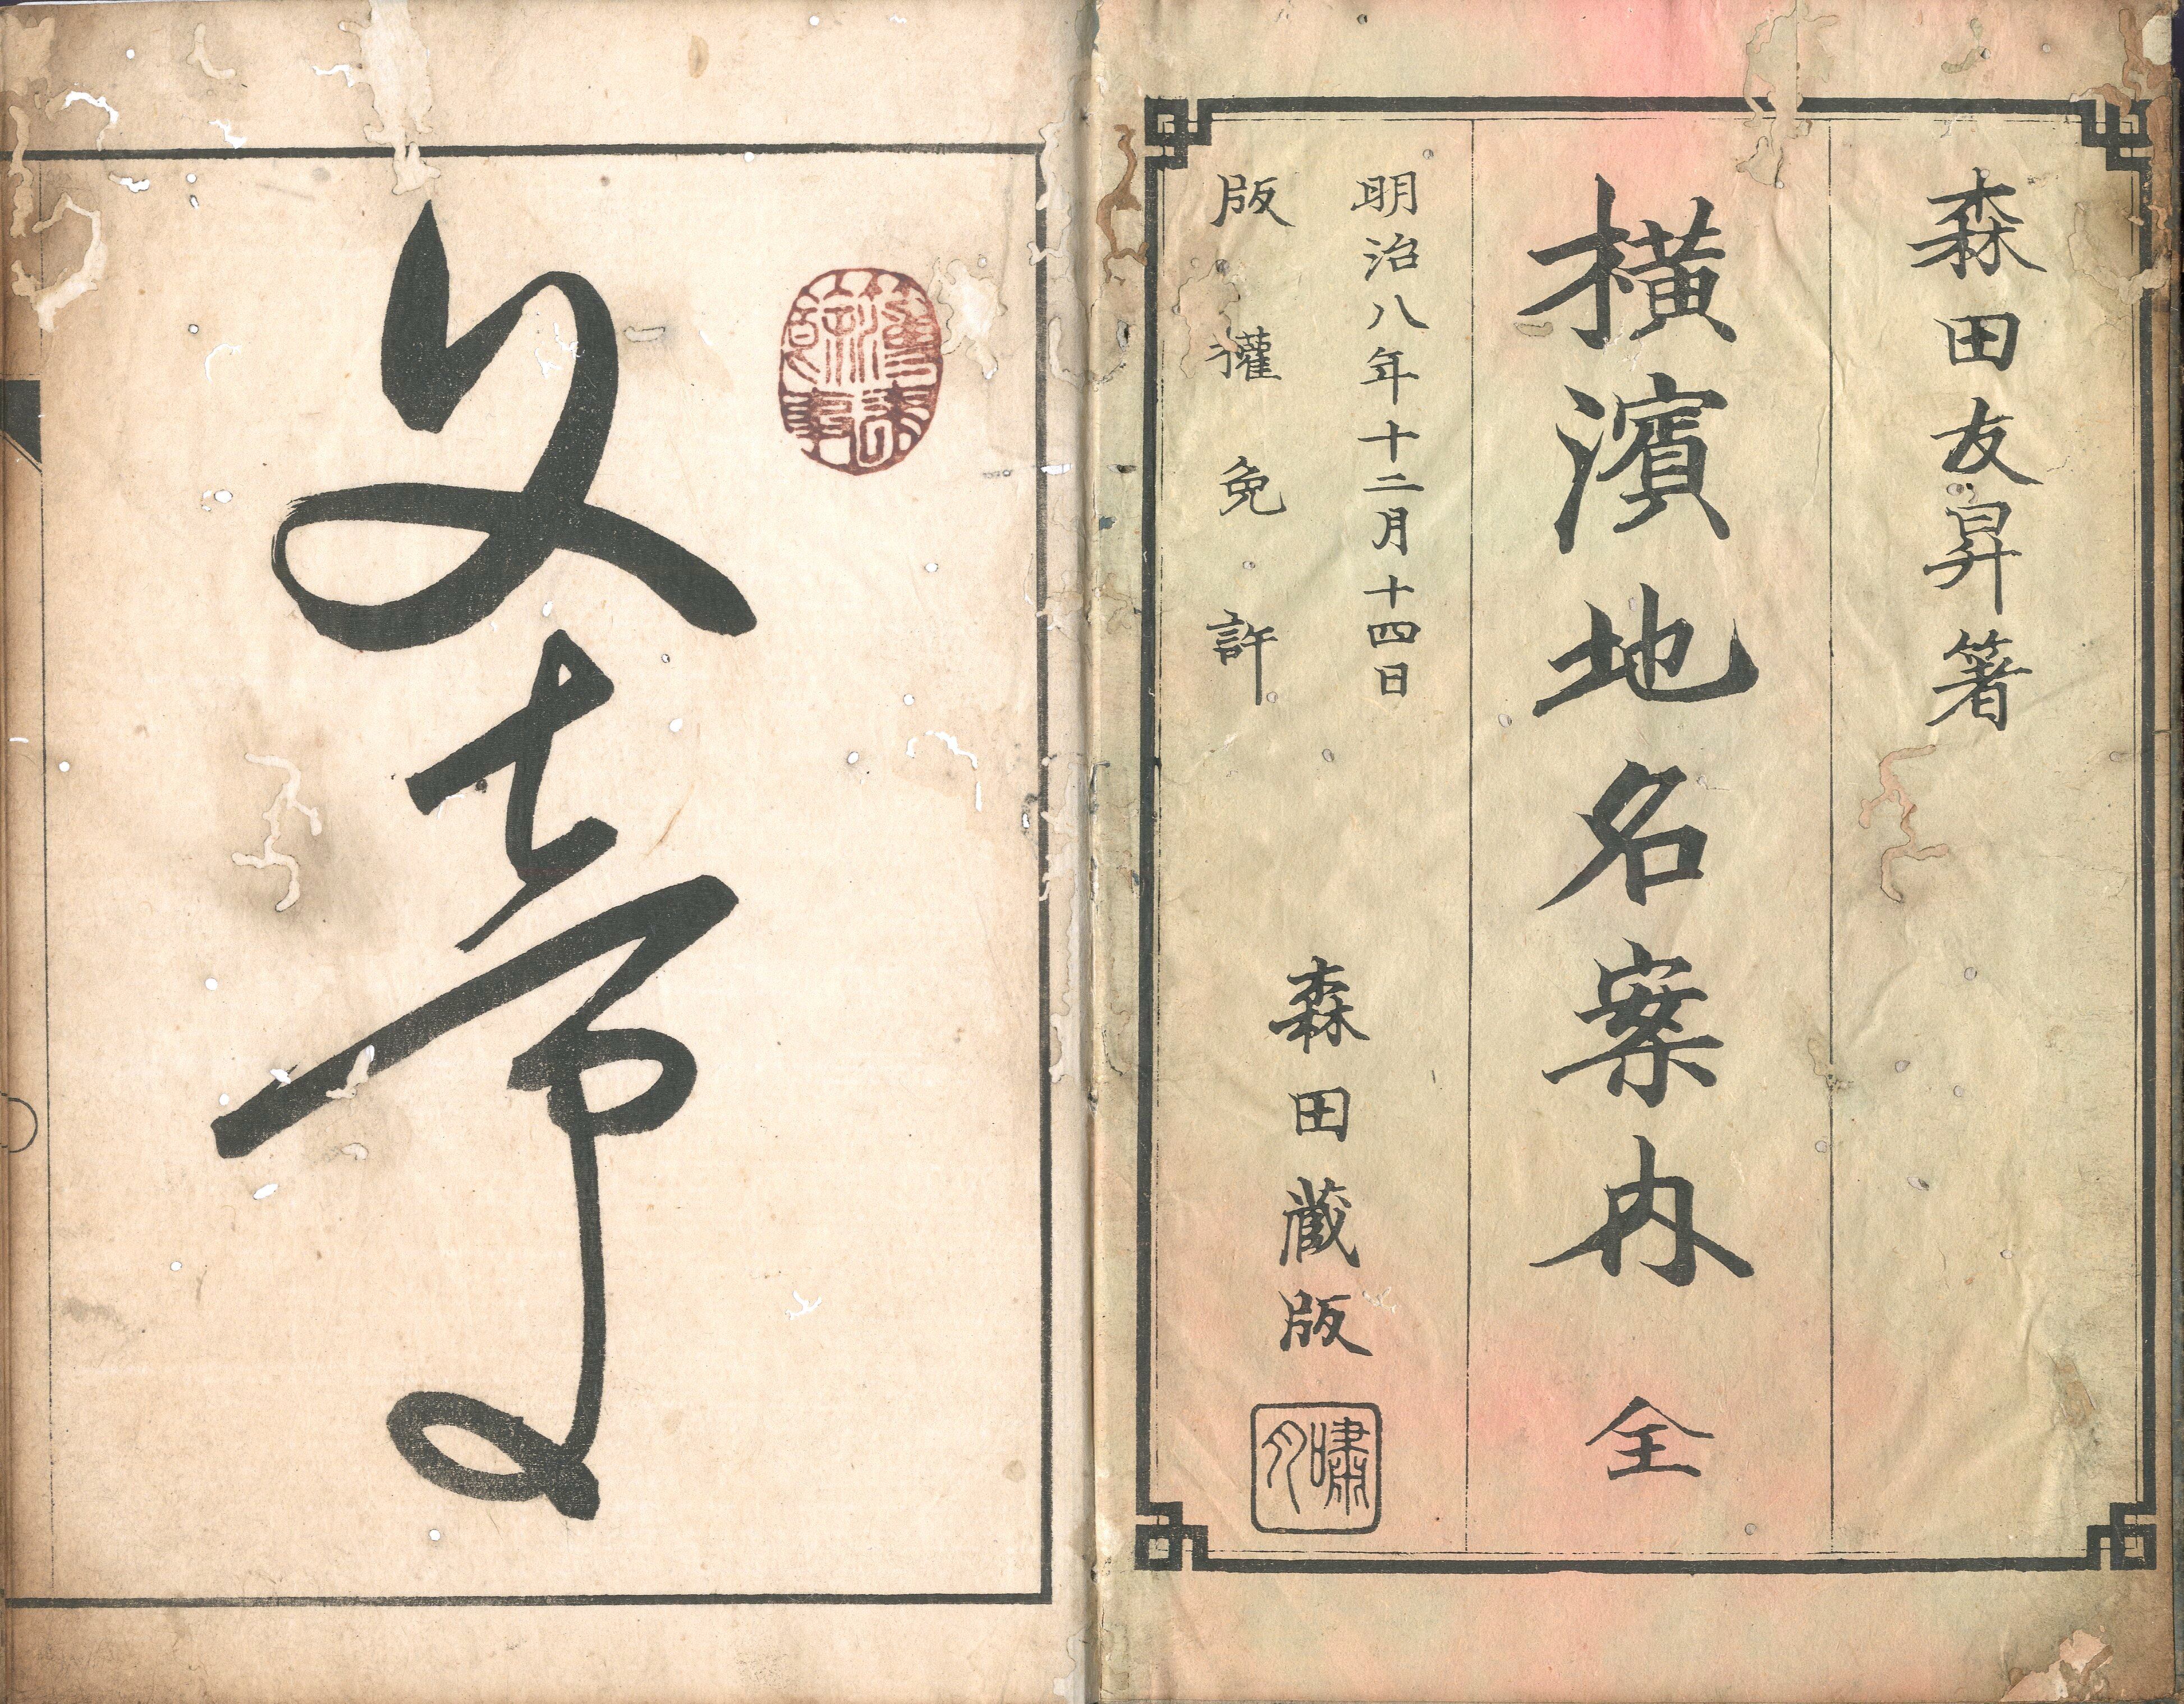 森田友昇箸
橫濱地名案内 全
明治八年十二月十四日
版權免許
森田藏版
嘯月